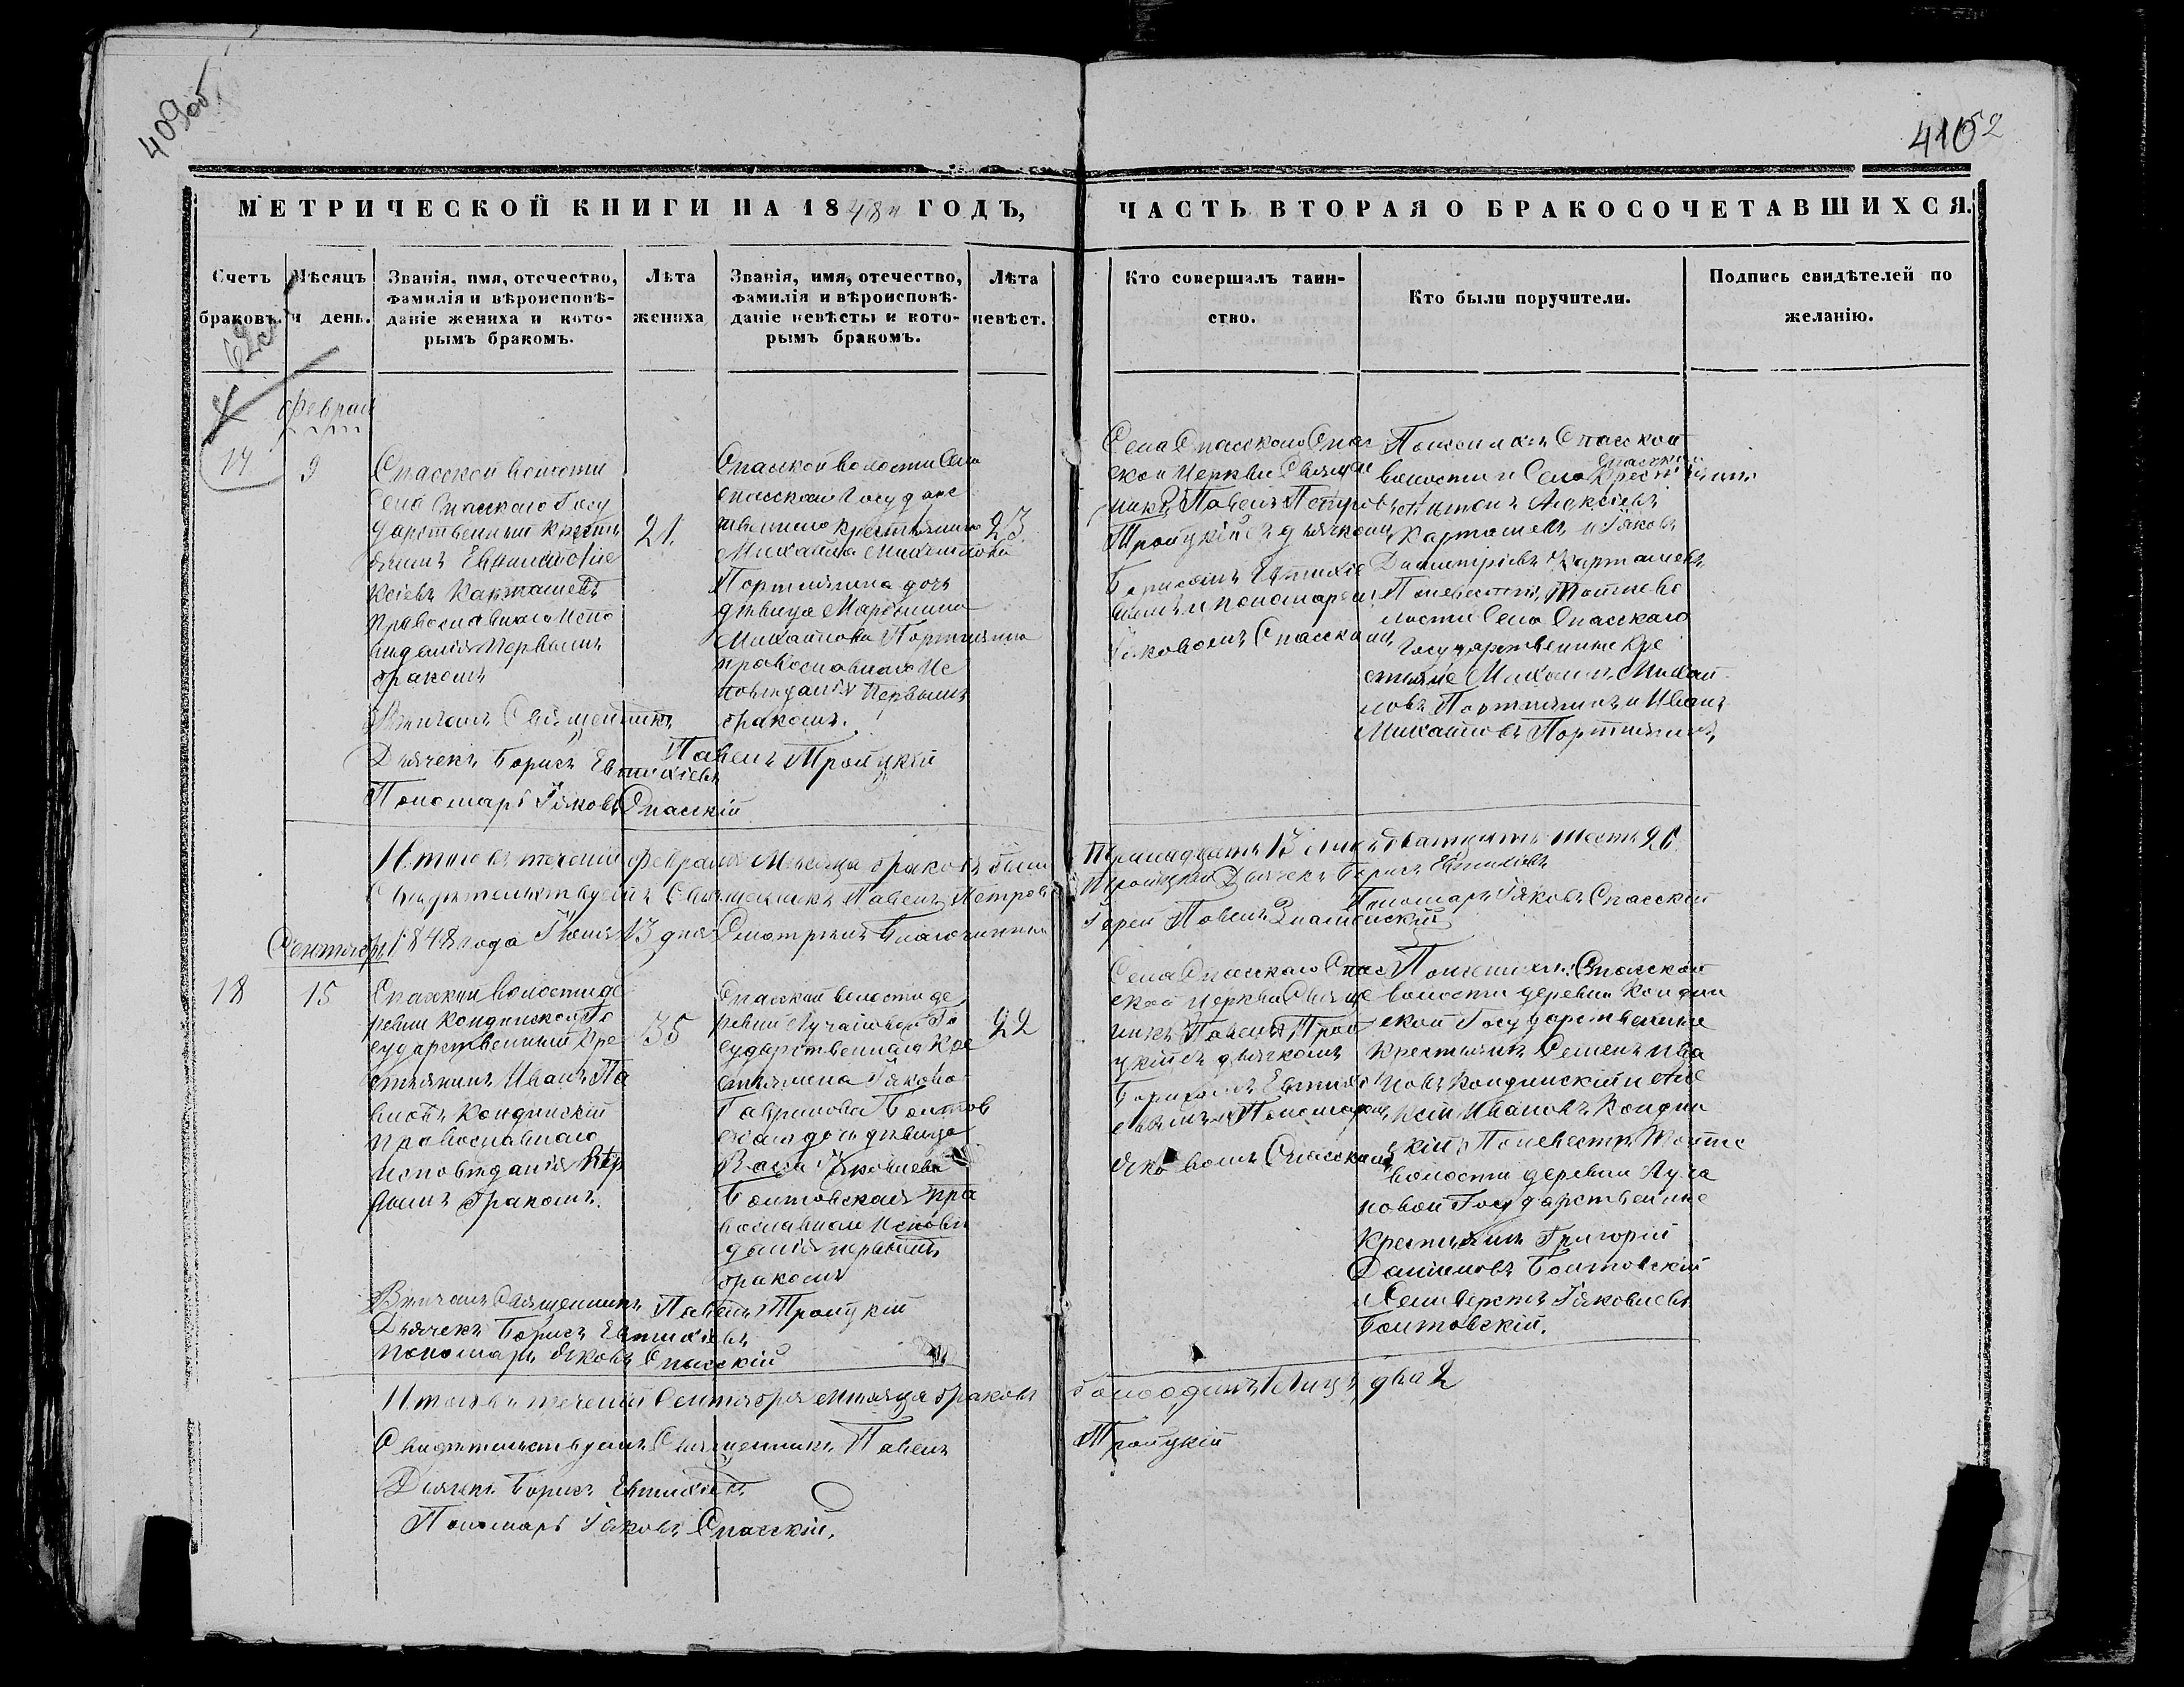 409об
410
52
МЕТРИЧЕСКОЙ КНИГИ НА 1848й ГОДЪ,
ЧАСТЬ ВТОРАЯ О БРАКОСОЧЕТАВШИХСЯ.
Счетъ браковъ.
Мѣсяцъ и день.
Званія, имя, отечество,
фамилія и вѣроисповѣ-
даніе жениха и кото-
рымъ бракомъ.
Лѣта
жениха
Званія, имя, отечество,
фамилія и вѣроисповѣ-
даніе невѣсты и кото-
рымъ бракомъ.
Лѣта
невѣст.
Кто совершалъ таин-
ство.
Кто были поручители.
Подпись свидѣтелей по
желанію.
Феврал
9
Спасской волости
Села Спаскаго Госу
дарственный Кресть
янинъ
ксіевъ Карташевъ
православнаго испо
веданія Первымъ
бракомъ
21.
Спаской волости Села
спасскаго Государс
твеннаго Крестьянина
Михайла
Портнягина дочь
девица
Михайлова Портнягина
православнаго Ис
поведанія первымъ
бракомъ.
23.
Села Спасскаго Спас
ской Церкви Свяще
никъ Павелъ Петровъ
Троицкій съ дьячкомъ
Борисомъ Евтихіе
вымъ и пономаремъ
Іяковомъ Спасскимъ
По женихѣ Спасской
волости Села
спаскаго
Крестьяни
Алексіевъ
Карташевъ и Іяковъ
Димитріевъ Карташевъ
По невестѣ, Тойже во
лости Села Спасскаго
Государственные Кре
стьяне Михаилъ Михай
ловъ Портнягинъ и Иванъ
Михайловъ Портнягинъ
Венчалъ Священникъ
Павелъ Троицкій
Дьячекъ Борисъ Евтихіевъ
Пономарь Іяковъ Спасскій
Итого въ теченіи Февраля Месяца браковъ было
тринадцать 13 лицъ двадцать шесть 26
Свидетельствуемъ Священникъ Павелъ Петровъ
Троицкій Дьячекъ Борисъ Евтихіевъ
Пономарь Іяковъ Спасскій
1848 года 13 дня Смотрелъ Благочинный
Іерей Павелъ Знаменскій
Сентябрь
18
15
Спасской волости де
ревни Кондинской Го
сударственный Кре
стьянинъ Иванъ Па
вловъ Кондинскій
православнаго
исповеданія пер
вымъ бракомъ.
35
Спасской волости де
ревни Лучановой Го
сударственнаго Кре
стьянина Іякова
Гаврилова Болтов
скаго дочь девица
Іяковлева
Болтовская пра
вославнаго исповѣ
данія первымъ
бракомъ
22
Села Спасскаго Спас
ской церкви Свяще
никъ Павелъ Трои
цкій съ дьячкомъ
Борисомъ Евтихі
евымъ и Пономаремъ
Яковомъ Спасскимъ
По женихѣ: Спасской
волости деревни Кондин
ской Государственные
Крестьяне Семенъ Ива
новъ Кондинскій и Але
ксѣй Ивановъ Кондин
скій; По невестѣ Тойже
волости деревни Луча
новой Государственные
Крестьяне Григорій
Даниловъ Болтовскій
и Селиверстъ Іяковлевъ
Болтовскій.
Венчалъ Священникъ Павелъ Троицкій
Дьячекъ Борисъ Евтихіевъ
пономарь Яковъ Спасскій
Итого въ теченіи Сентября Месяца браковъ
было одинъ 1 Лицъ два 2
Свидетельствуемъ Священникъ Павелъ
Троицкій
Дьячекъ Борисъ Евтихіевъ
Пономарь Іяковъ Спасскій.